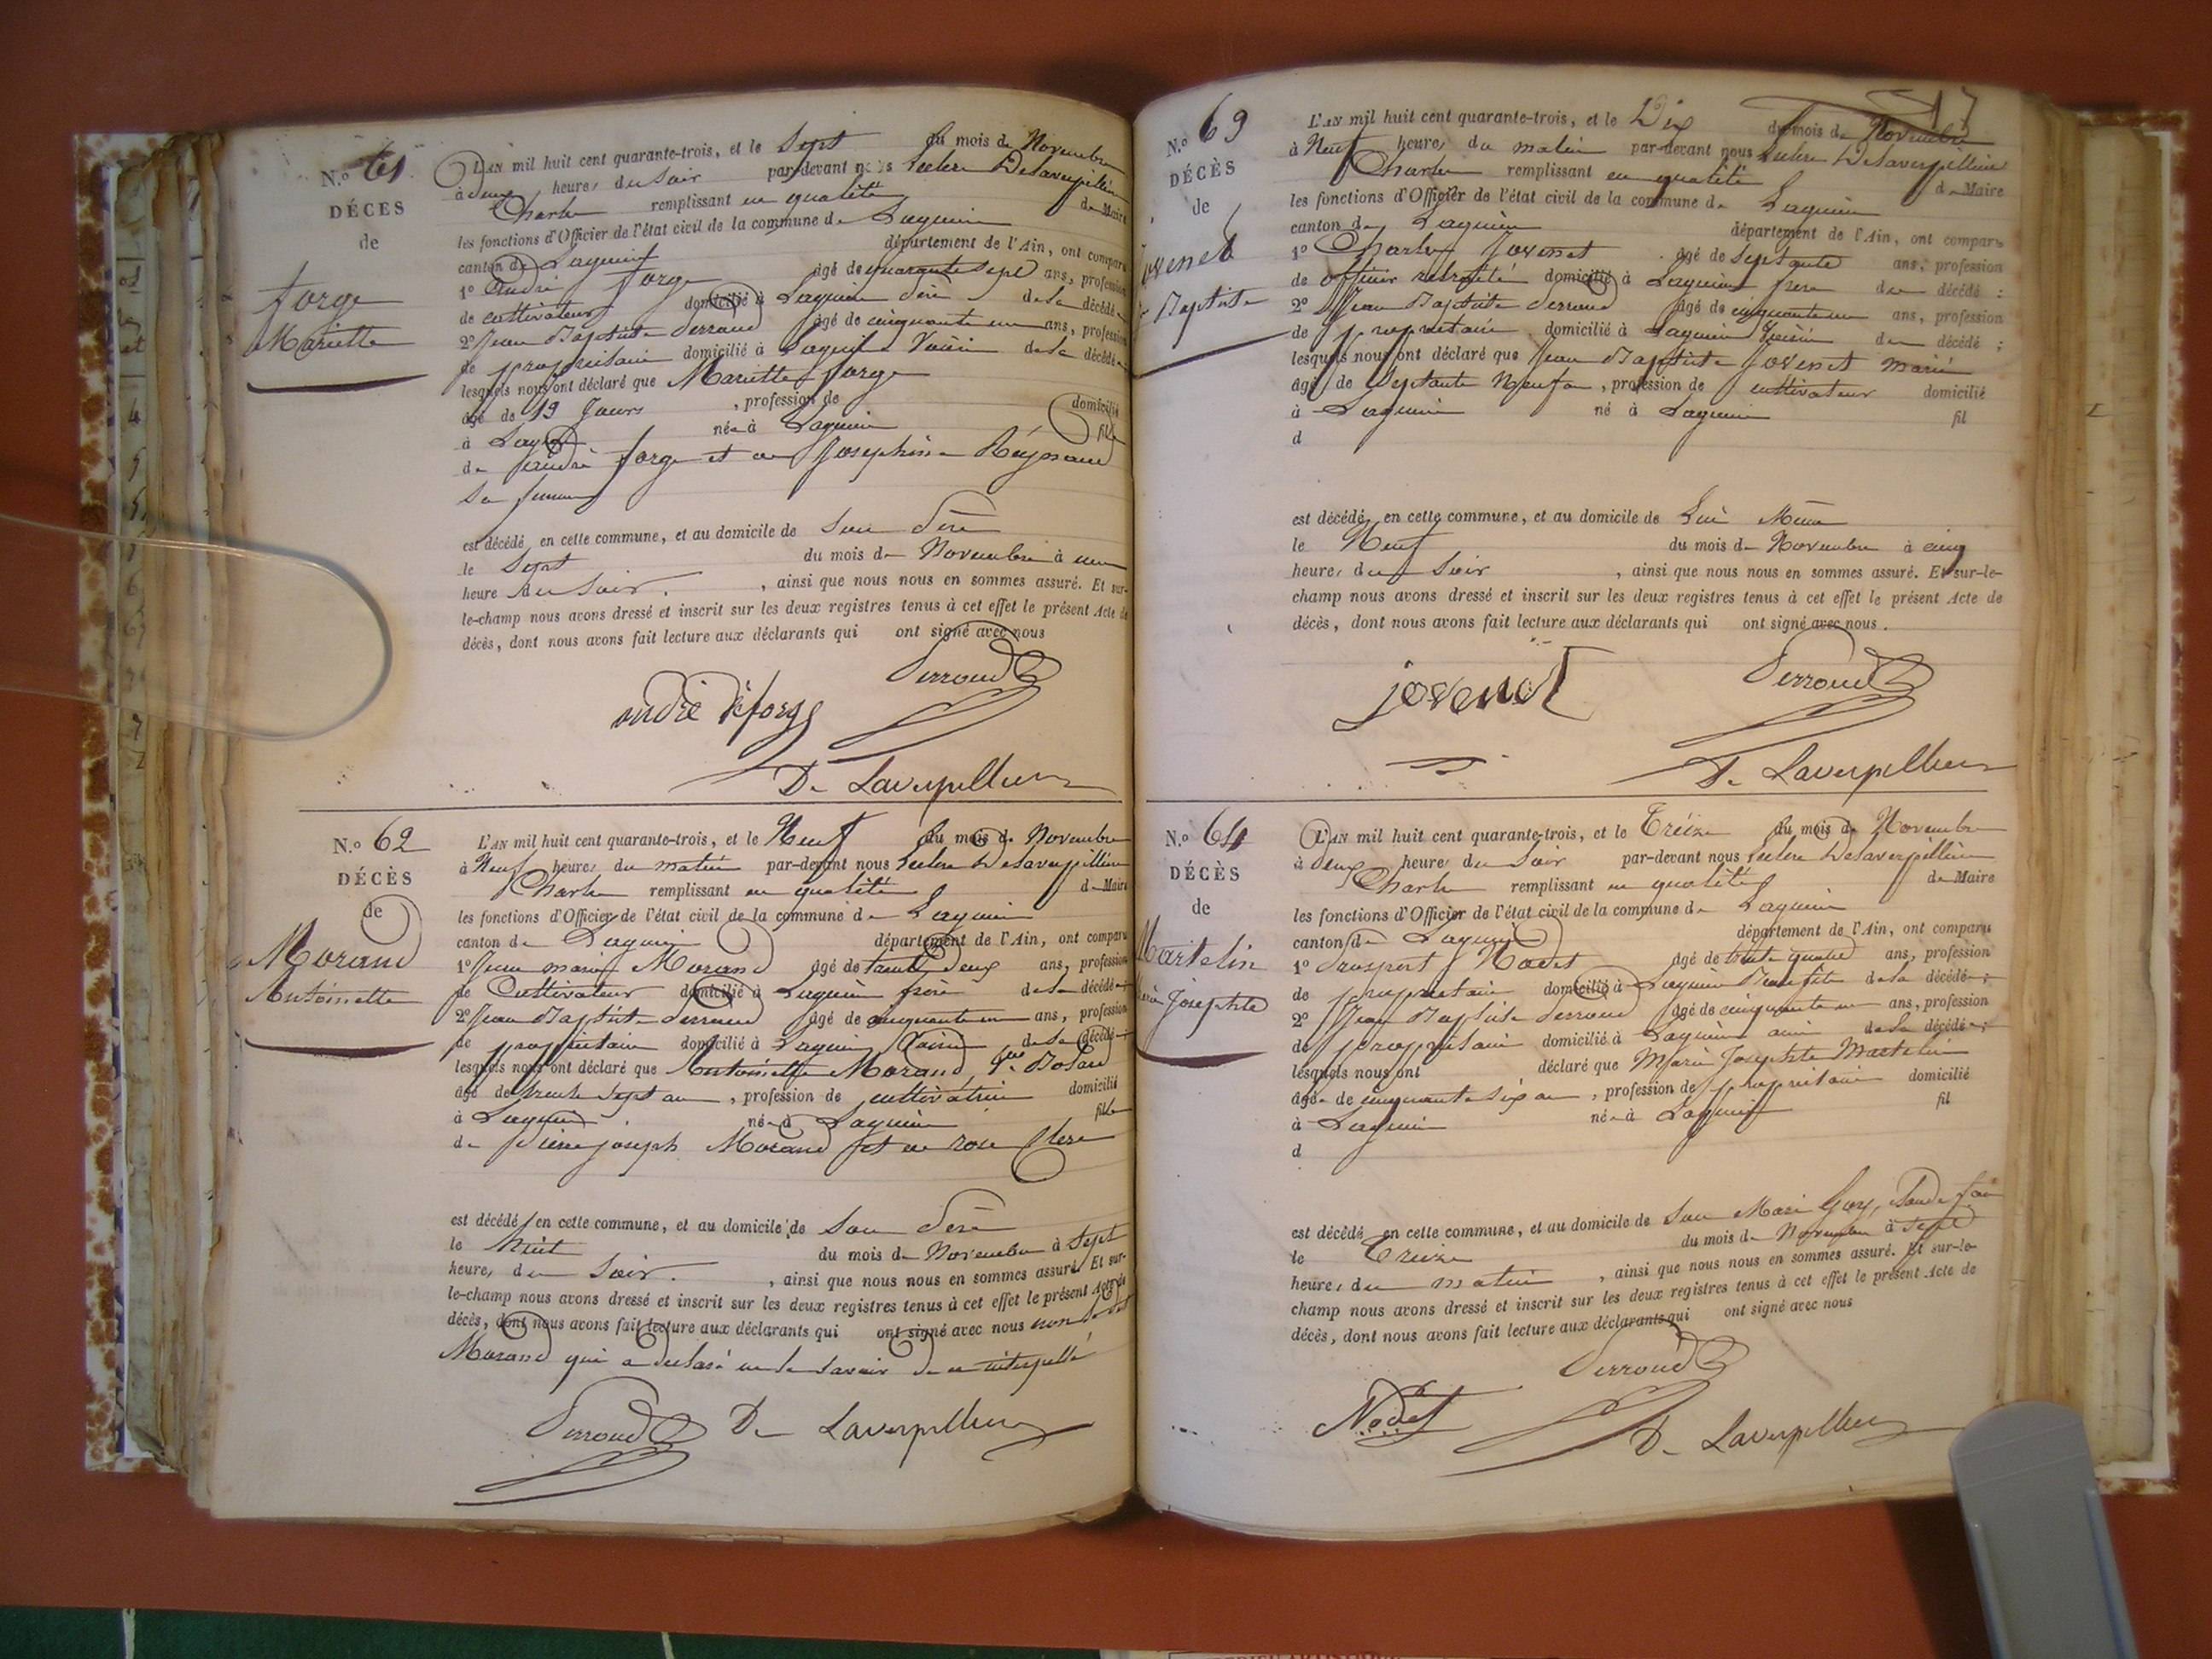 N.º 61
DÉCES
de
forge
Mariette
L'AN mil huit cent quarante-trois, et le Sept du mois de Novembre
à deux heures du Soir par-devant nous Leclere Delaverpillière
Charles remplissant en qualité de Maire
les fonctions d'Officier de l'état civil de la commune de Lagnieu
canton de Lagnieu département de l'Ain, ont comparu
1º André forge âgé de quarante sept ans, profession
de cultivateur domicilié à Lagnieu Père de la décédée
2º Jean Baptiste Perroud âgé de cinquante un ans, profession
de propriétaire domicilié à Lagnieu Voisin de la décédée
lesquels nous ont déclaré que Mariette forge
âgé de 19 Jours , profession de domicilié
à Lagnieu née à Lagnieu fille
de André forge et de Josephine Reynaud
Sa femme
est décédé en cette commune, et au domicile de Son Père
le Sept du mois de Novembre à une
heure du Soir. , ainsi que nous nous en sommes assuré. Et sur-
le-champ nous avons dressé et inscrit sur les deux registres tenus à cet effet le présent Acte de
décès, dont nous avons fait lecture aux déclarants qui ont signé avec nous
Perroud
andré forge
De Laverpillière
N.º 62
DÉCÈS
de
Morand
Antoinette
L'AN mil huit cent quarante-trois, et le Neuf du mois de Novembre
à Neuf heures du matin par-devant nous Leclere Delaverpillière
Charles remplissant en qualité de Maire
les fonctions d'Officier de l'état civil de la commune de Lagnieu
canton de Lagnieu département de l'Ain, ont comparu
1º Jean marie Morand âgé de trente deux ans, profession
de Cultivateur domicilié à Lagnieu frère de la décédée
2º Jean Baptiste Perroud âgé de cinquante un ans, profession
de propriétaire domicilié à Lagnieu Voisin de la décédée
lesquels nous ont déclaré que Antoinette Morand Ve
âgé de trente Sept ans , profession de cultivatrice domicilié
à Lagnieu née à Lagnieu fille
de Pierre joseph Morand et de rose
est décédé en cette commune, et au domicile de Son Père
le huit du mois de Novembre à Sept
heures du Soir. , ainsi que nous nous en sommes assuré. Et sur-
le-champ nous avons dressé et inscrit sur les deux registres tenus à cet effet le présent Acte de
décès, dont nous avons fait lecture aux déclarants qui ont signé avec nous non
Morand qui a declaré ne le Savoir de ce interpellé
Perroud De Laverpillière
17
N.º 63
DÉCÈS
de
Jovenet
Baptiste
L'AN mil huit cent quarante-trois, et le Dix du mois de Novembre
à Neuf heures du matin par-devant nous Leclere Delaverpillière
Charles remplissant en qualité de Maire
les fonctions d'Officier de l'état civil de la commune de Lagnieu
canton de Lagnieu département de l'Ain, ont comparu
1º Charles Jovenet âgé de Septante ans, profession
de officier retraité domicilié à Lagnieu frère du décédé ;
2º Jean Baptiste Perroud âgé de cinquante un ans, profession
de propriétaire domicilié à Lagnieu Voisin du décédé ;
lesquels nous ont déclaré que Jean Baptiste Jovenet marié
âgé de Septante Neuf ans , profession de cultivateur domicilié
à Lagnieu né à Lagnieu fil
d
est décédé en cette commune, et au domicile de Lui Même
le Neuf du mois de Novembre à cinq
heures du Soir , ainsi que nous nous en sommes assuré. Et sur-le-
champ nous avons dressé et inscrit sur les deux registres tenus à cet effet le présent Acte de
décès, dont nous avons fait lecture aux déclarants qui ont signé avec nous.
jovenet Perroud
De Laverpillière
N.º 64
DÉCÈS
de
Martelin
Marie Josephte
L'AN mil huit cent quarante-trois, et le Treize du mois de Novembre
à deux heures du Soir par-devant nous Leclere Delaverpillière
Charles remplissant en qualité de Maire
les fonctions d'Officier de l'état civil de la commune de Lagnieu
canton de Lagnieu département de l'Ain, ont comparu
1º Prospert Nodet âgé de trente quatre ans, profession
de propriétaire domicilié à Lagnieu Beau fils de la décédée ;
2º Jean Baptiste Perroud âgé de cinquante un ans, profession
de propriétaire domicilié à Lagnieu ami de la décédée ;
lesquels nous ont déclaré que Marie Josephte Martelin
âgée de cinquante six ans , profession de propriétaire domicilié
à Lagnieu née à Lagnieu fil
d
est décédé en cette commune, et au domicile de Son Mari
le Treize du mois de Novembre à Sept
heures du matin , ainsi que nous nous en sommes assuré. Et sur-le-
champ nous avons dressé et inscrit sur les deux registres tenus à cet effet le présent Acte de
décès, dont nous avons fait lecture aux déclarants qui ont signé avec nous
Perroud
Nodet
De Laverpillière